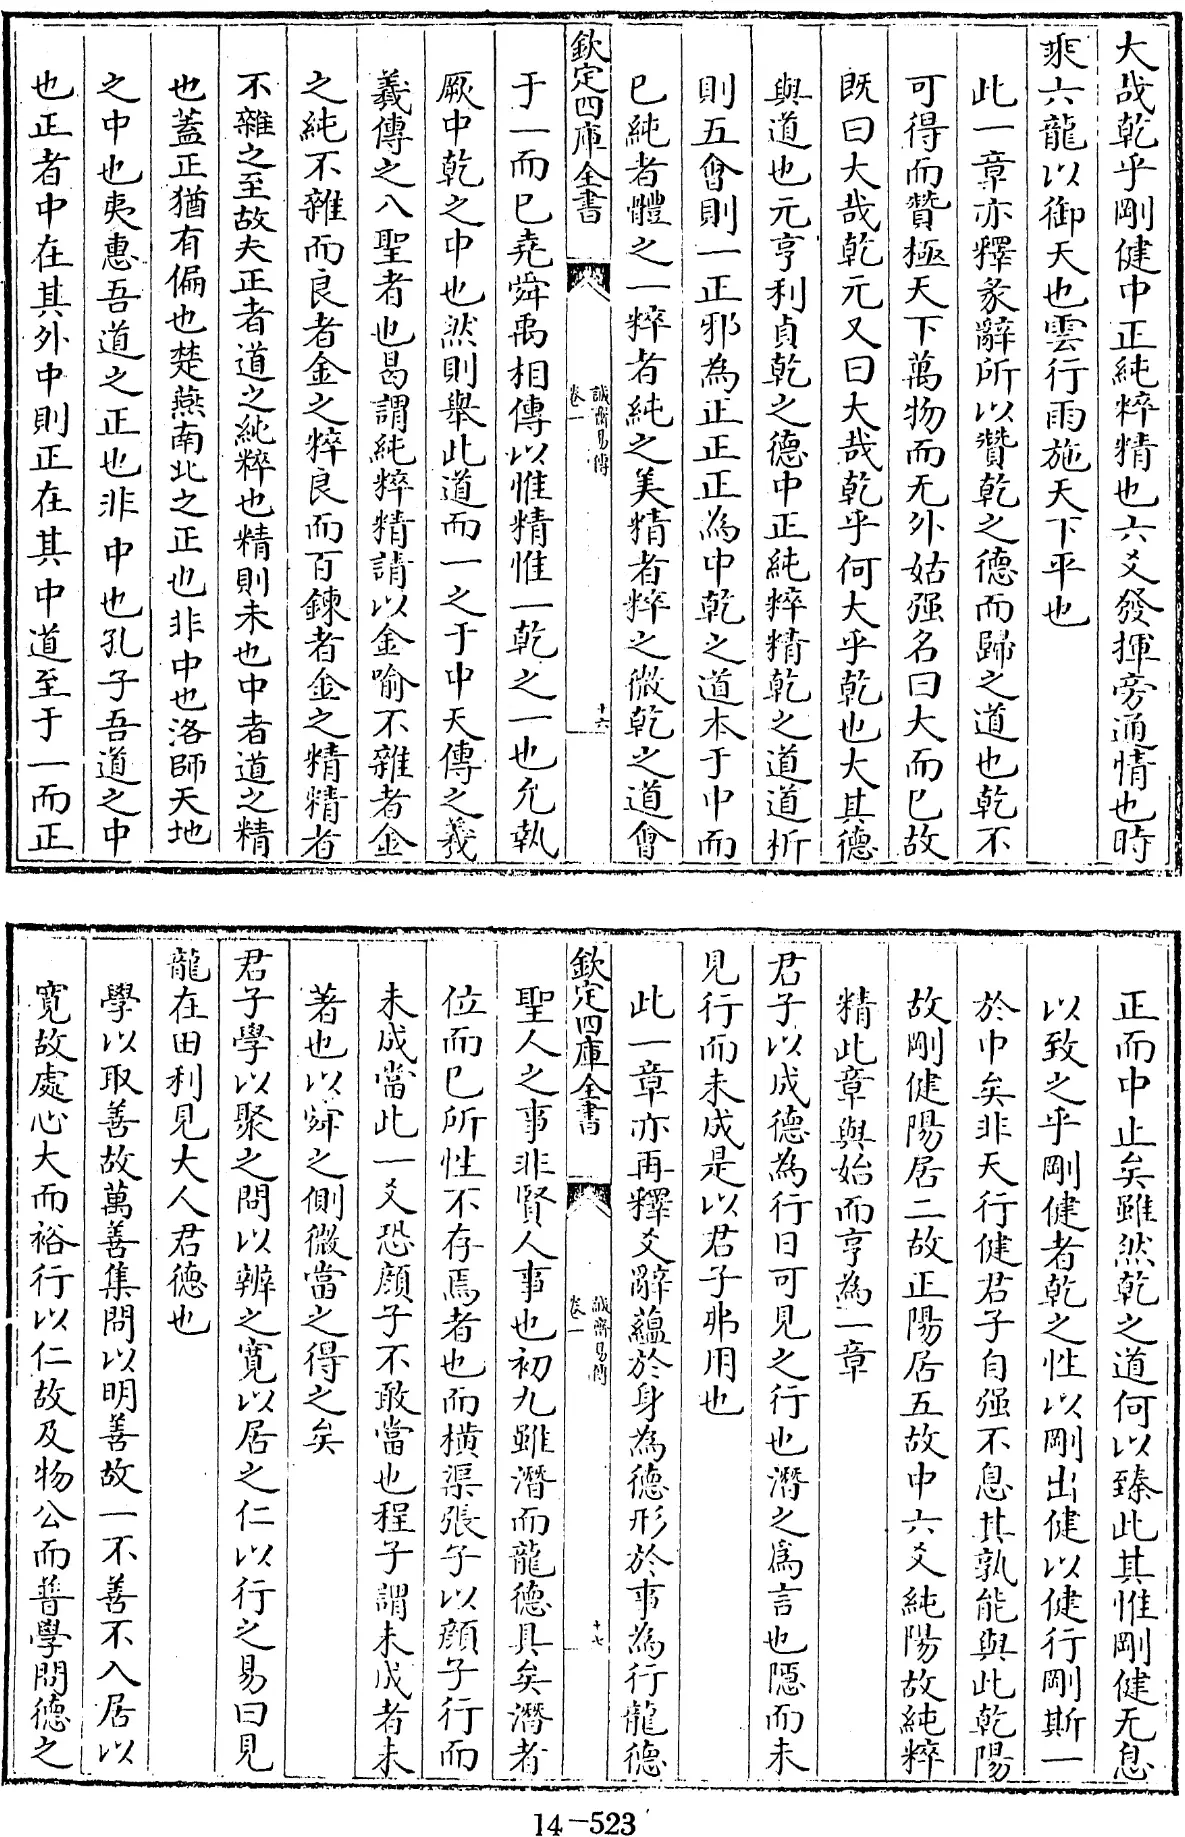 大哉乾乎剛健中正純粹精也六爻發揮旁通情也時
乘六龍以御天也雲行雨施天下平也
此一章亦釋彖辭所以贊乾之德而歸之道也乾不
可得而贊極天下萬物而无外姑强名曰大而已故
既曰大哉乾元又曰大哉乾乎何大乎乾也大其德
與道也元亨利貞乾之德中正純粹精乾之道道析
則五會則一正邪為正正正為中乾之道本于中而
已純者體之一粹者純之美精者粹之微乾之道會
欽定四庫全書
誠齋易傳
卷一
十六
于一而已堯舜禹相傳以惟精惟一乾之一也允執
厥中乾之中也然則舉此道而一之于中天傳之羲
羲傳之八聖者也曷謂純粹精請以金喻不雜者金
之純不雜而良者金之粹良而百鍊者金之精精者
不雜之至故夫正者道之純粹也精則未也中者道之精
也蓋正猶有偏也楚燕南北之正也非中也洛師天地
之中也夷惠吾道之正也非中也孔子吾道之中
也正者中在其外中則正在其中道至于一而正
正而中止矣雖然乾之道何以臻此其惟剛健无息
以致之乎剛健者乾之性以剛出健以健行剛斯一
於中矣非天行健君子自强不息其孰能與此乾陽
故剛健陽居二故正陽居五故中六爻純陽故純粹
精此章與始而亨為一章
君子以成德為行日可見之行也潛之為言也隱而未
見行而未成是以君子弗用也
此一章亦再釋爻辭蘊於身為德形於事為行龍德
欽定四庫全書
誠齋易傳
卷一
十七
聖人之事非賢人事也初九雖潛而龍德具矣潛者
位而已所性不存焉者也而橫渠張子以顔子行而
未成當此一爻恐顔子不敢當也程子謂未成者未
著也以舜之側微當之得之矣
君子學以聚之問以辨之寬以居之仁以行之易曰見
龍在田利見大人君德也
學以取善故萬善集問以明善故一不善不入居以
寬故處心大而裕行以仁故及物公而普學問德之
14-523